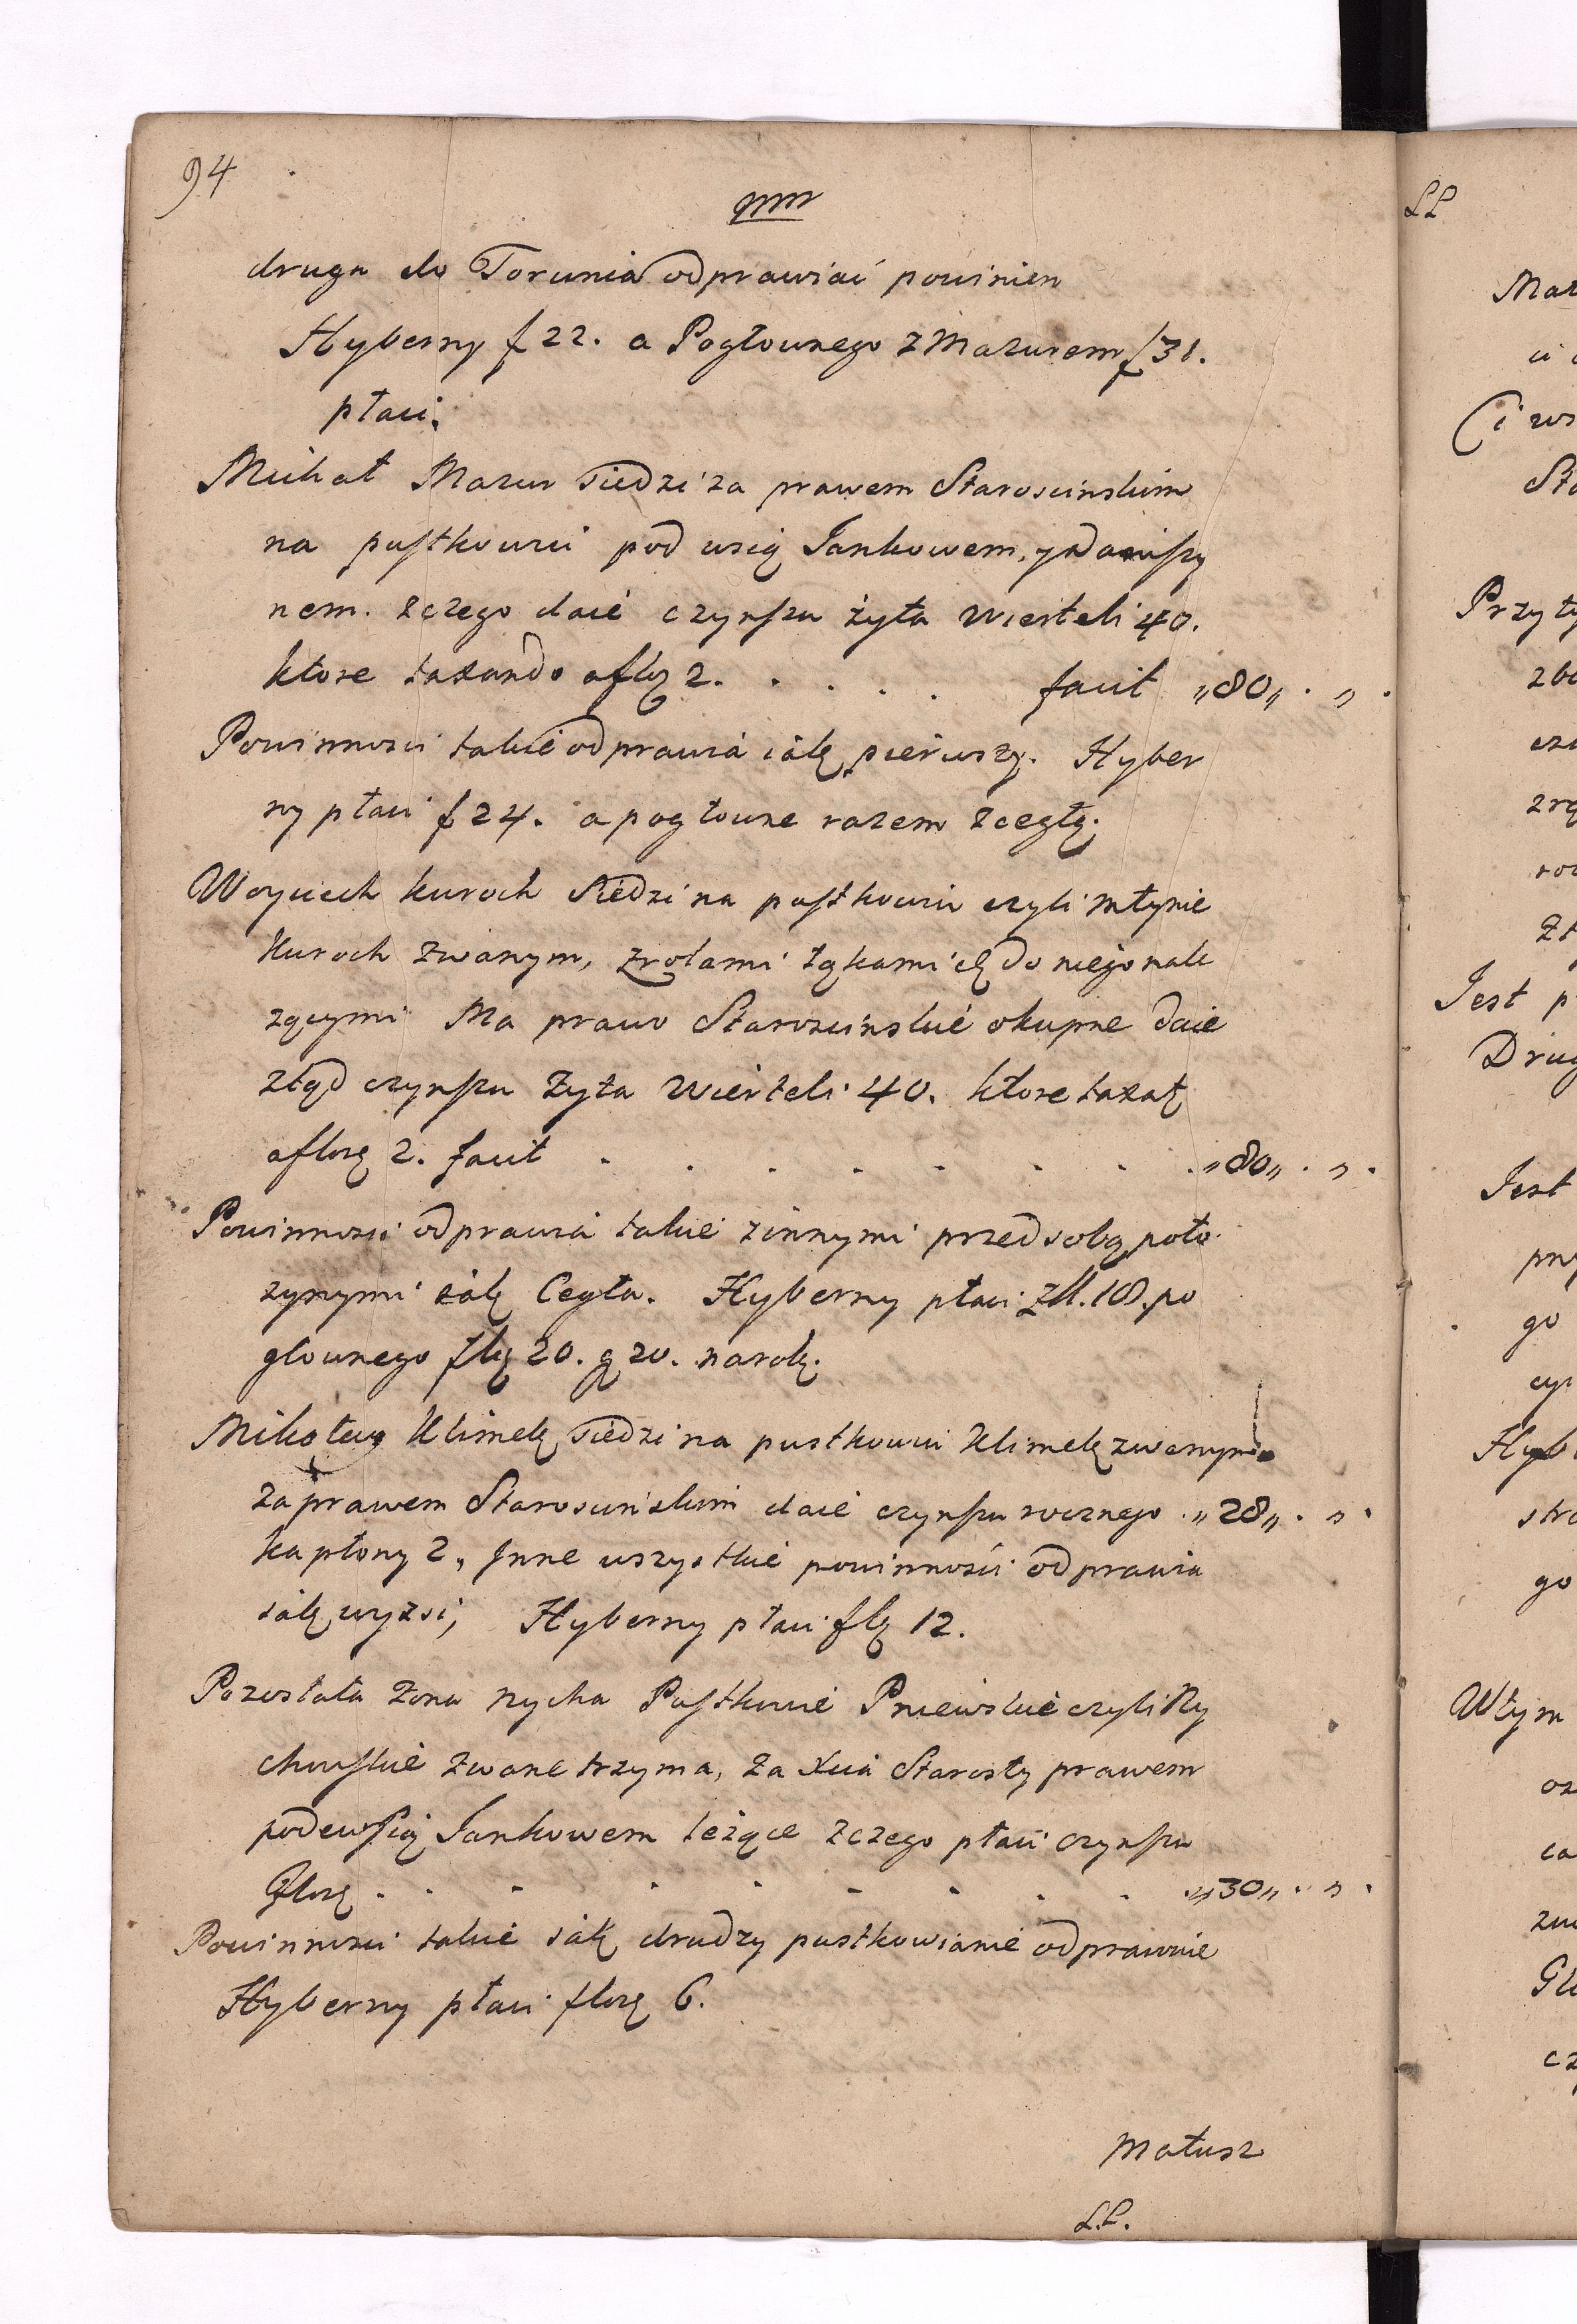 94
druga do Torunia odprawiać powinien
Hyberny f 22. a Pogłownego z Mazurem f 31.
płaci.
Michał Mazur siedzi za prawem Staroscinskim
na pustkowiu pod wsią Jankowem,
nem. z czego daie czynszu żyta wierteli 40.
ktore taxando a flg 2. . . . . facit „80„ . „ .
Powinnosci takie odprawia iak pierwszy. Hyber
ny płaci f 24. a pogłowne razem z cegłą.
Woyciech kuroch siedzi na pustkowiu czyli młynie
Kuroch zwanym, z rolami łąkami do niego nale
zącymi Ma prawo Staroscinskie okupne daie
ztąd czynszu Zyta Wierteli 40. ktore taxat
a flor 2. facit . . . . . . . . „80„ . „ .
Powinnosci odprawia takie z innymi przed sobą poło
zynymi iak Cegła. Hyberny płaci zł. 18. po
głownego flg 20. g 20. na rok.
Mikołay Klimek siedzi na pustkowiu Klimek zwanym
za prawem Staroscinskim daie czynszu rocznego . „28„ . „ .
kapłony 2, Inne wszystkie powinnosci odprawia
iak wyzsi, Hyberny płaci flg 12.
Pozostała Zona Nycha Pustkowie Pniewskie czyli Ny
chowskie zwane trzyma, za Xcia Starosty prawem
pode wsią Jankowem leżące z czego płaci czynszu
flor . . . . . . . . . „30„ . „ .
Powinnosci takie iak drudzy pustkowianie odprawuie
Hyberny płaci flor 6.
Matusz
L.P.
LP
Maz
(i ws
Sta
Przyty
zbo
zrą
Jest p
Drug
Jest
przy
go
Hyb
go
Wtym
ca
Gł
cz